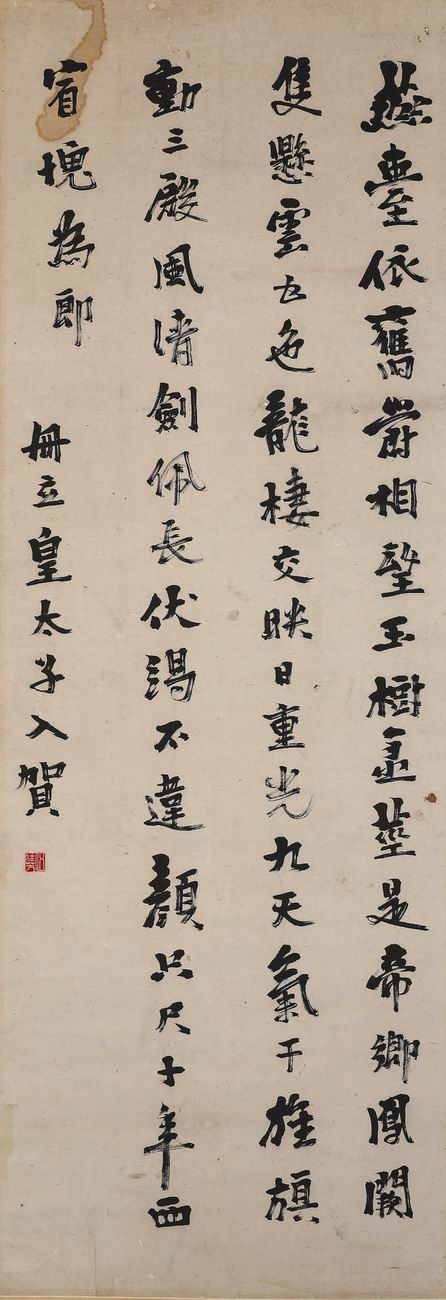 燕臺依舊蔚相望玉樹金莖是帝鄉鳳闕
隻懸雲五色龍樓交映日重光九天氣干旌旗
動三殿風清劍佩長伏謁不違顏只尺十年西
省愧為郎
冊立皇太子入賀